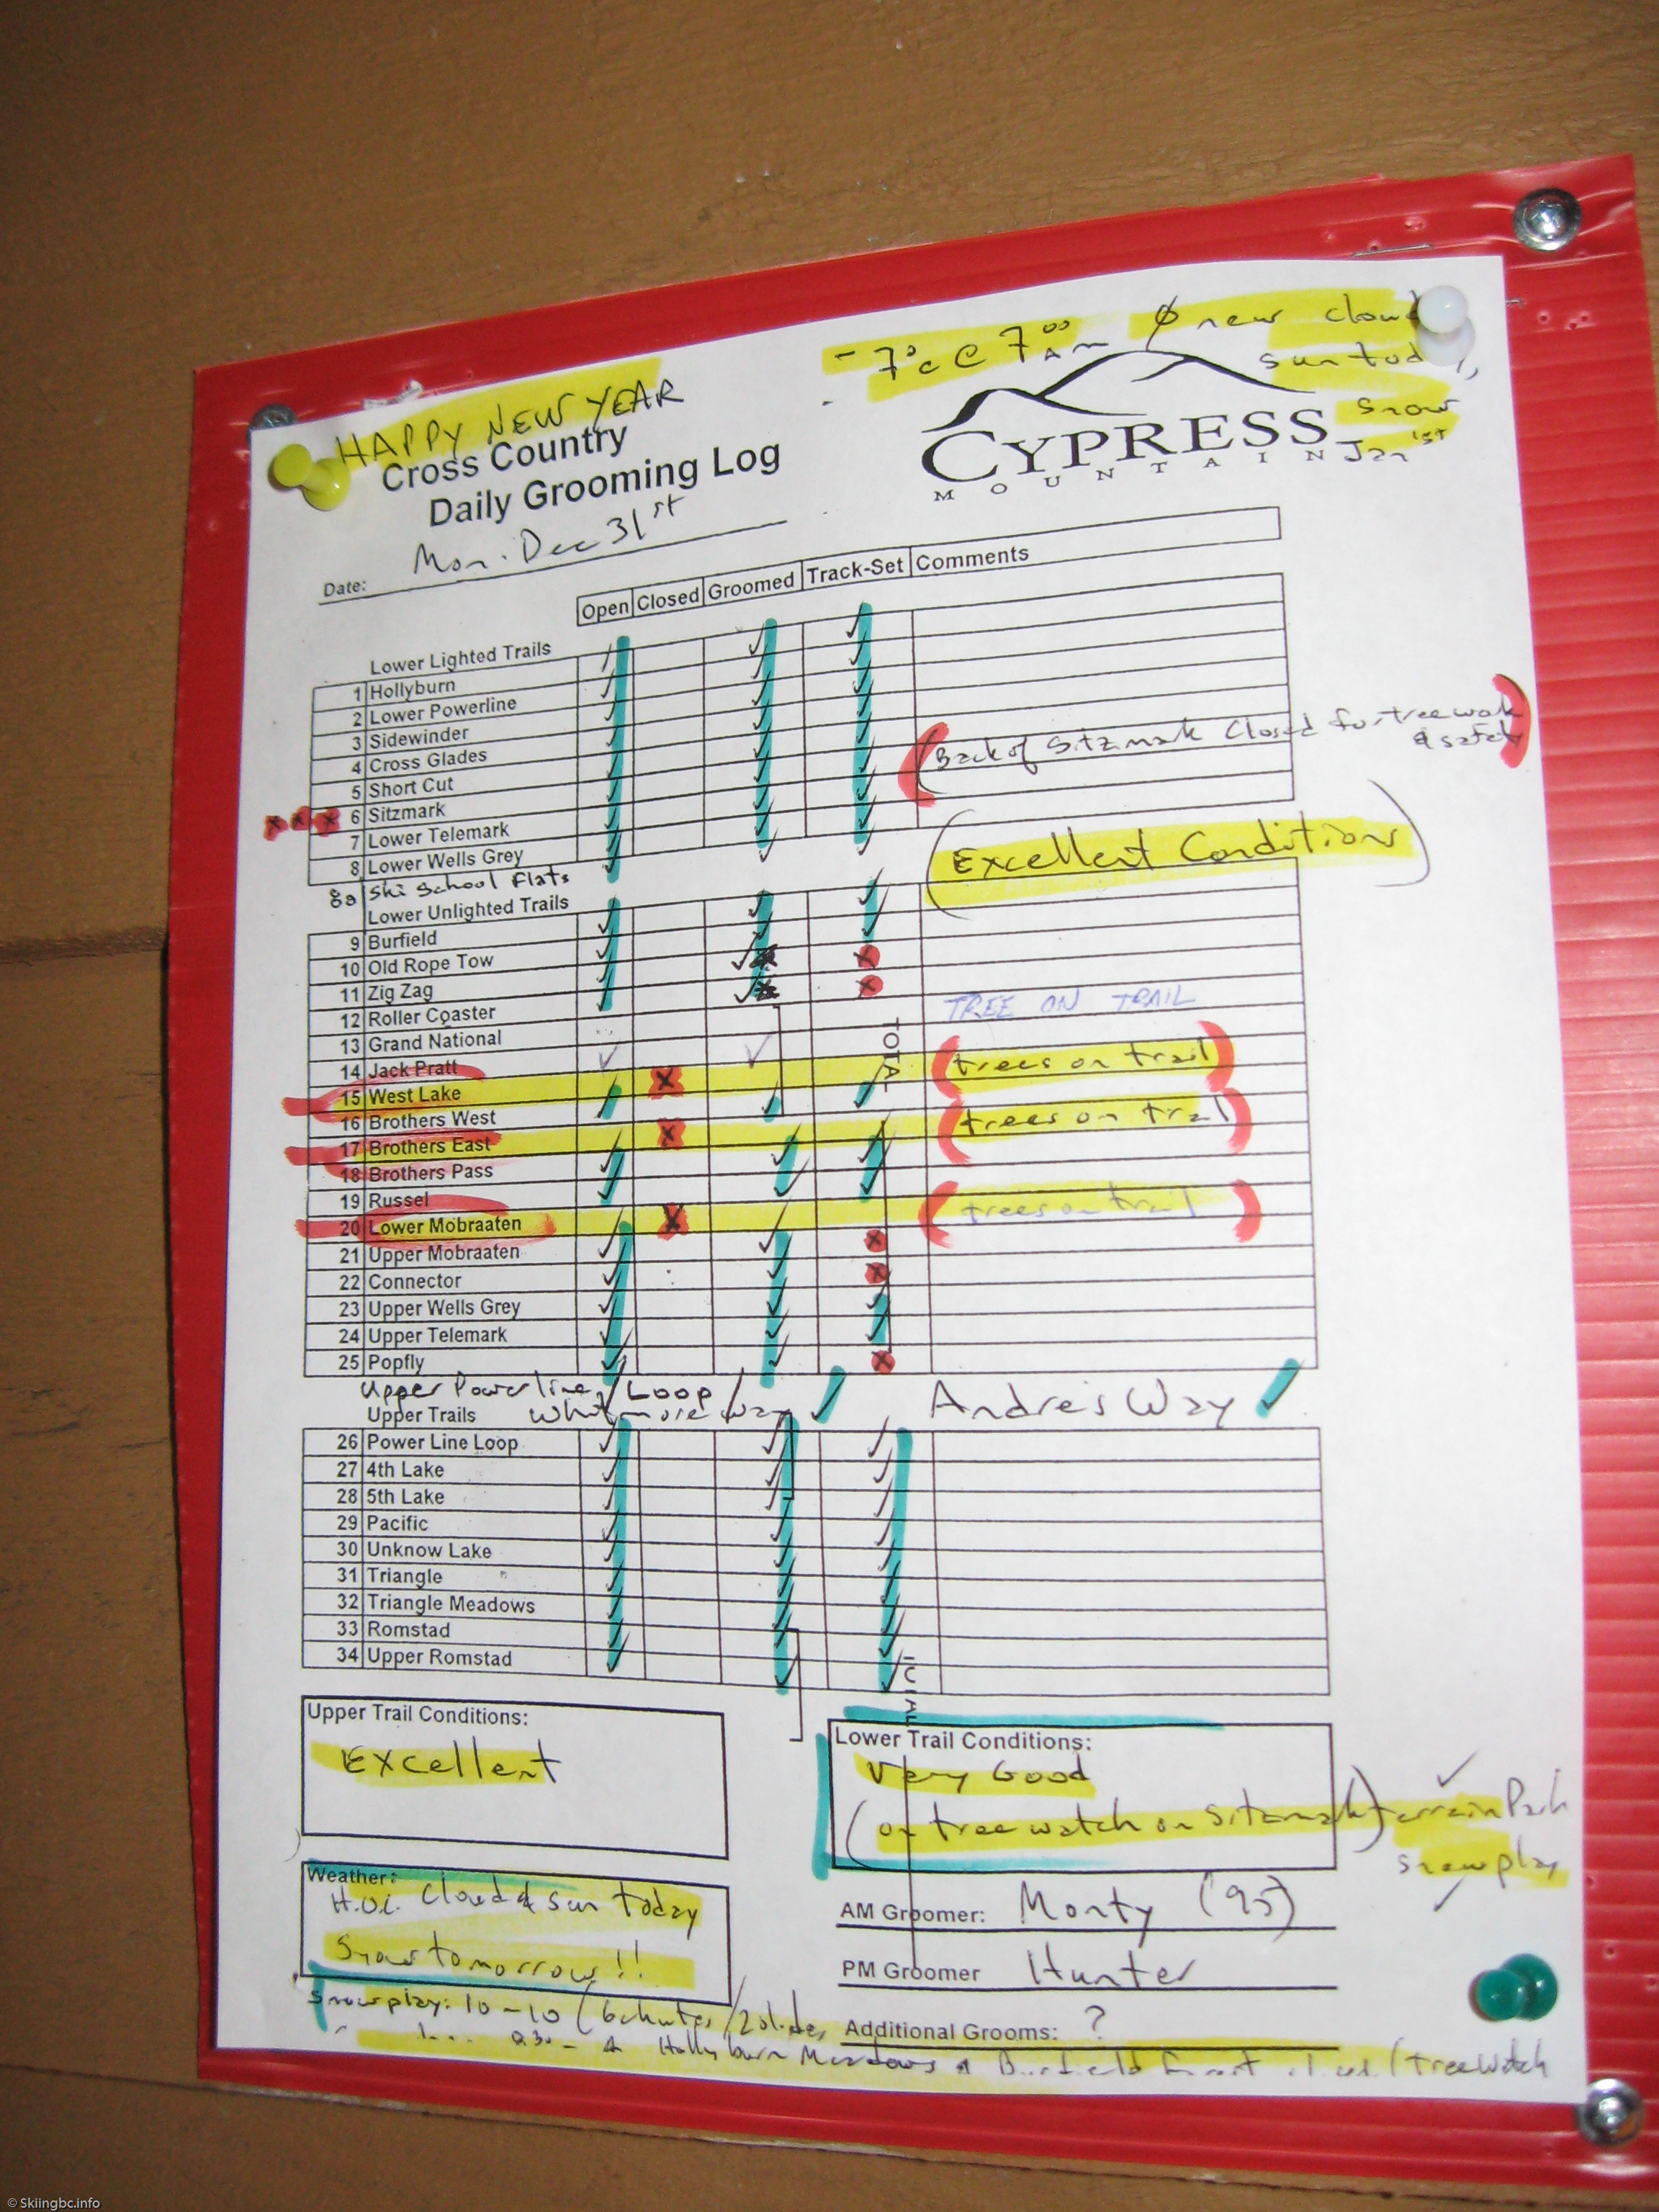 - 7°c @ 7⁰⁰ AM Ø new cloud
sun today,
snow
Jan 1st
HAPPY NEW YEAR
Cross Country
Daily Grooming Log
CYPRESS
MOUNTAIN
Date: Mon. Dec 31st
Open Closed Groomed Track-Set Comments
Lower Lighted Trails
1 Hollyburn
2 Lower Powerline
3 Sidewinder
4 Cross Glades
5 Short Cut
(Back of Sitzmark Closed for tree work
& safety)
6 Sitzmark
7 Lower Telemark
8 Lower Wells Grey
(Excellent Conditions)
8a Ski School Flats
Lower Unlighted Trails
9 Burfield
10 Old Rope Tow
11 Zig Zag
12 Roller Coaster
TREE ON TRAIL
13 Grand National
TOTAL
14 Jack Pratt
(trees on trail)
15 West Lake
16 Brothers West
(trees on trail)
17 Brothers East
18 Brothers Pass
19 Russel
(trees on trail)
20 Lower Mobraaten
21 Upper Mobraaten
22 Connector
23 Upper Wells Grey
24 Upper Telemark
25 Popfly
Upper Powerline / Loop /
Whitmore way
Andre's Way
Upper Trails
26 Power Line Loop
27 4th Lake
28 5th Lake
29 Pacific
30 Unknow Lake
31 Triangle
32 Triangle Meadows
33 Romstad
34 Upper Romstad
TOTAL
Upper Trail Conditions:
Excellent
Lower Trail Conditions:
Very Good
(on tree watch on Sitzmark)
terrain Park
snowplay
Weather:
H.O.C. cloud & sun today
Snow tomorrow!!
AM Groomer: Monty (95)
PM Groomer Hunter
Snowplay: 10-10 (6 chutes/2 slides
Additional Grooms: ?
Hollyburn Meadows & Burfield (treewatch
© Skiingbc.info